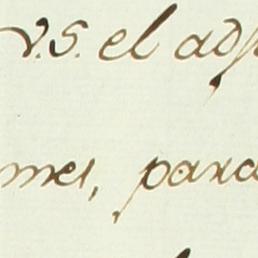 V.S. el adj
mes, para